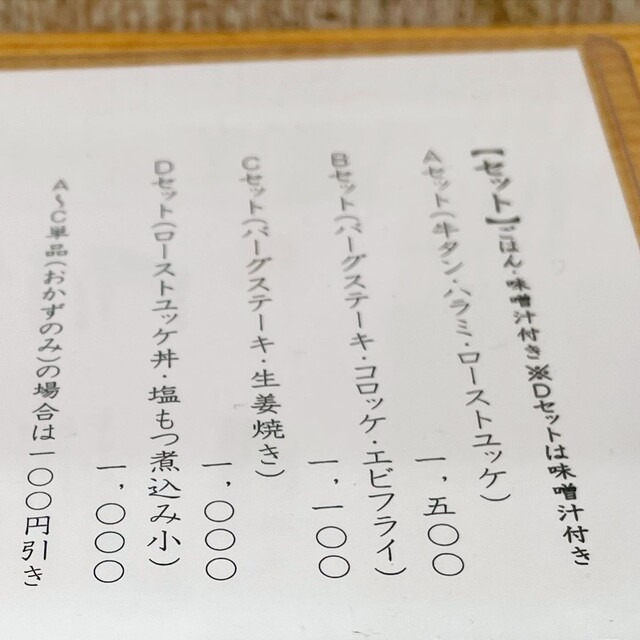 【セット】ごはん・味噌汁付き※Dセットは味噌汁付き
Aセット(牛タン・ハラミ・ローストユッケ)
一,五〇〇
Bセット(バーグステーキ・コロッケ・エビフライ)
一,一〇〇
Cセット(バーグステーキ・生姜焼き)
一,〇〇〇
Dセット(ローストユッケ丼・塩もつ煮込み小)
一,〇〇〇
A〜C単品(おかずのみ)の場合は一〇〇円引き